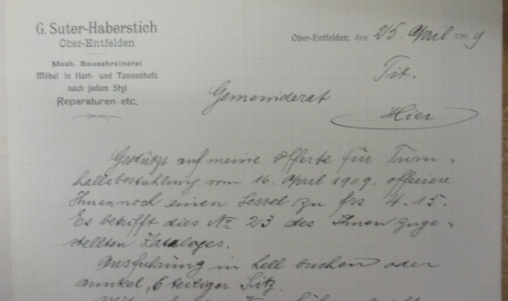 G. Suter-Haberstich
Ober-Entfelden
Mech. Bauschreinerei
Möbel in Hart- und Tannenholz
nach jedem Styl
Reparaturen etc.
Ober-Entfelden, den 25. April 1909
Tit.
Gemeinderat
Hier
Gestützt auf meine Offerte für Turn-
hallebestuhlung vom 16. April 1909. offeriere
Ihnen noch einen Sessel zu frs 4.15.
Es betrifft dies No 23 des Ihnen zuge-
stellten Kataloges.
Ausführung in hell buchen oder
dunkel, 6 teiliger Sitz.